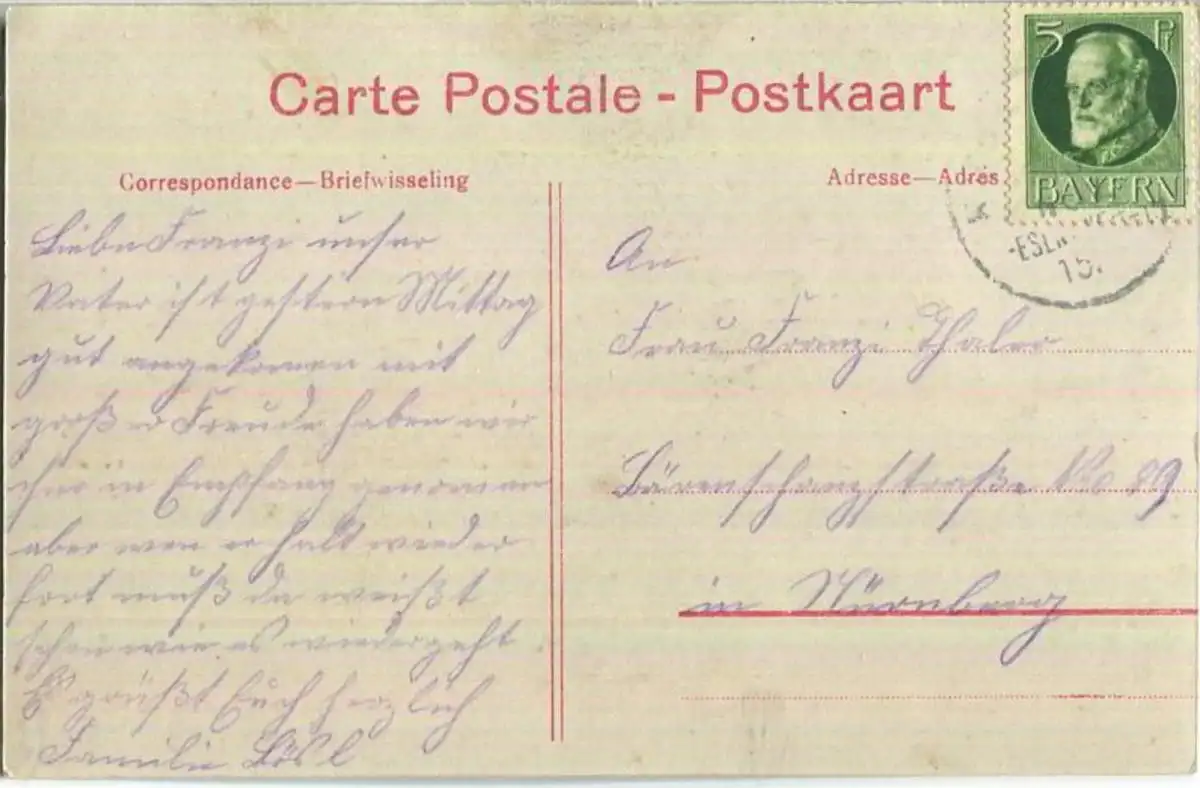 5 Pf
BAYERN
Carte Postale - Postkaart
Correspondance—Briefwisseling
Adresse—Adres
15.
Liebe Franzi unser
Vater ist gestern Mittag
gut angekomen mit
großer Freude haben wir
ihn in Empfang genomen
aber wen er halt wieder
fort muß da weißt
schon wie es wiedergeht
Es grüßt Euch herzlich
Familie Lösl
An
Frau Franzi Thaler
Bärenschanzstraße No 89
in Nürnberg